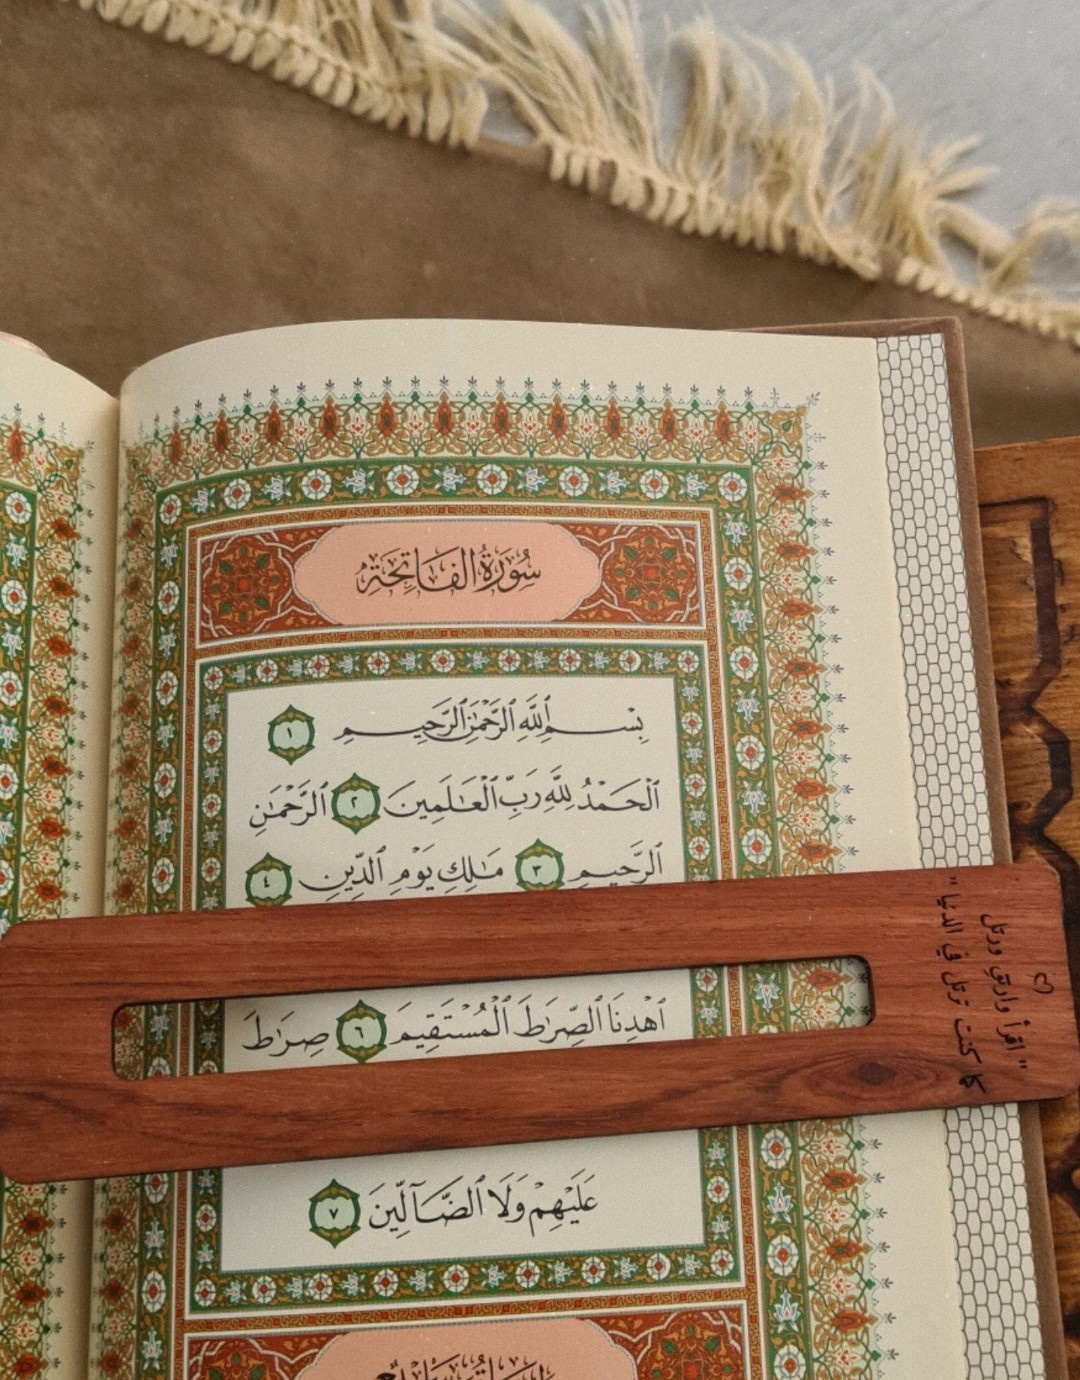 سُورَةُ الفَاتِحَةِ
بِسْمِ ٱللَّهِ ٱلرَّحْمَٰنِ ٱلرَّحِيمِ ١
ٱلْحَمْدُ لِلَّهِ رَبِّ ٱلْعَٰلَمِينَ ٢ ٱلرَّحْمَٰنِ
ٱلرَّحِيمِ ٣ مَٰلِكِ يَوْمِ ٱلدِّينِ ٤
ٱهْدِنَا ٱلصِّرَٰطَ ٱلْمُسْتَقِيمَ ٦ صِرَٰطَ
عَلَيْهِمْ وَلَا ٱلضَّآلِّينَ ٧
"اقرأ وارتق ورتل
كما كنت ترتل في الدنيا"